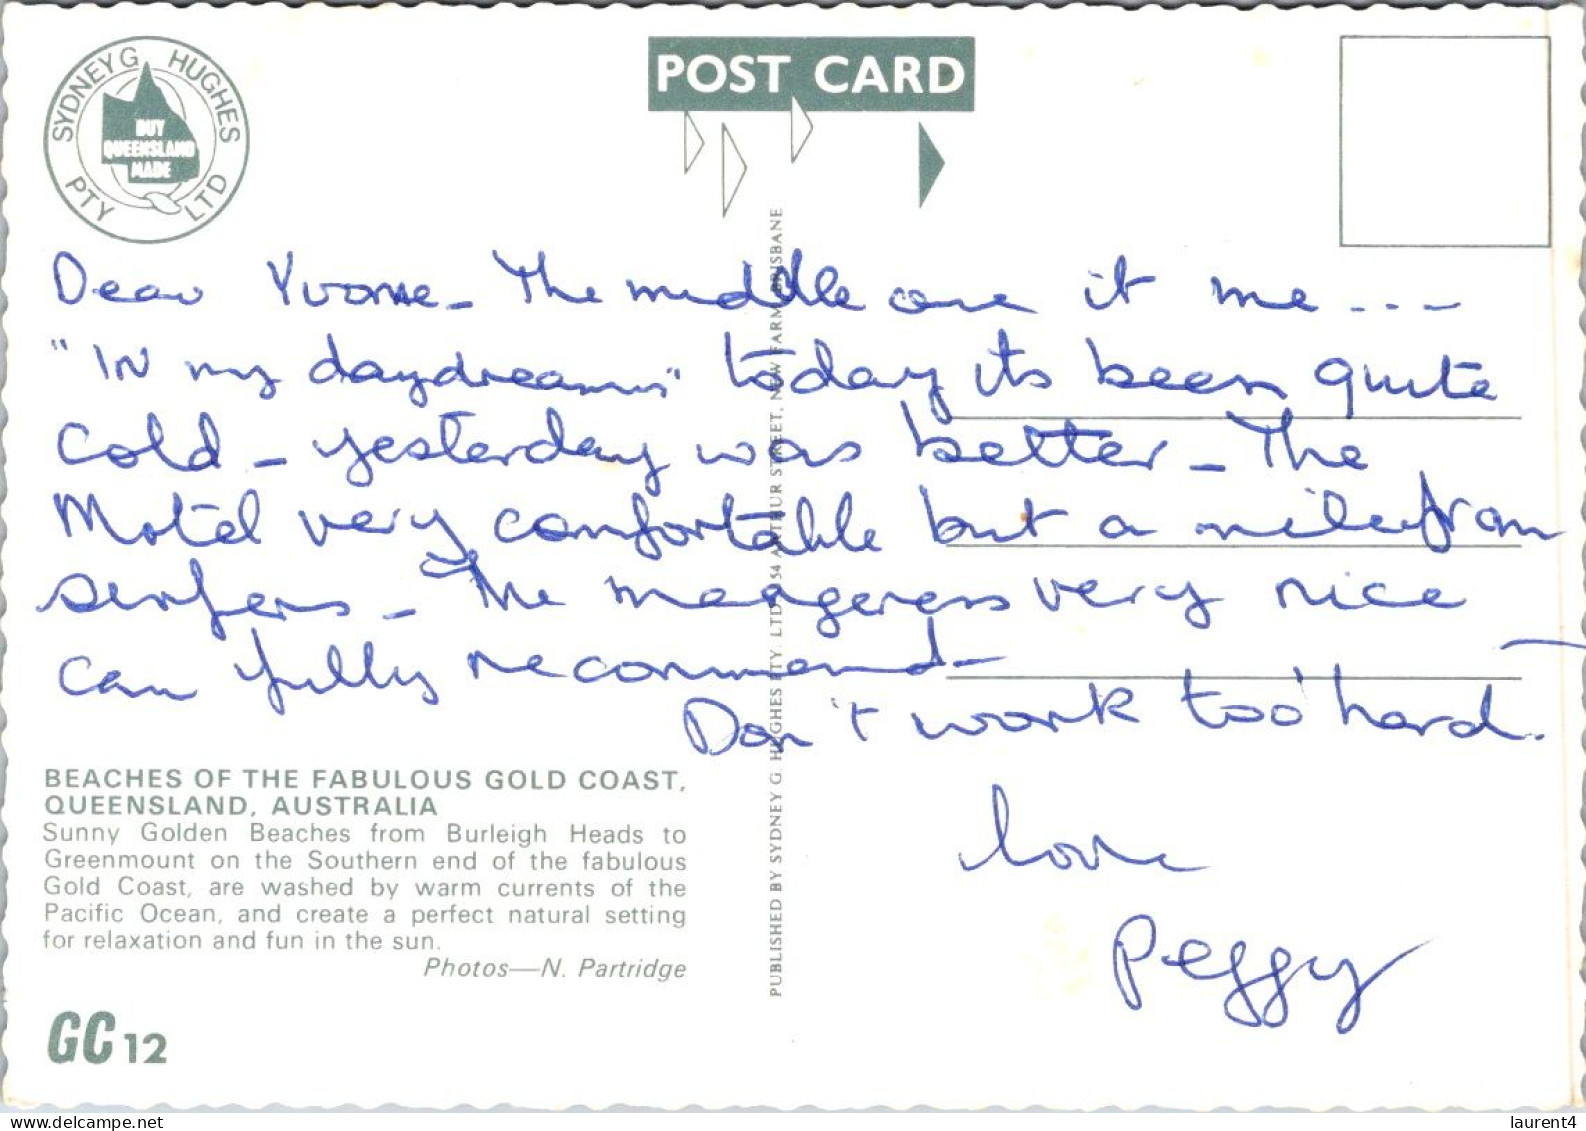 SYDNEY G HUGHES
PTY LTD
BUY
QUEENSLAND
MADE
POST CARD
Dear Yvonne - The middle one it me ...
"IN my daydreams" today its been quite
cold - yesterday was better - The
Motel very comfortable but a mile from
surfers - The manageress very nice
can fully recommend -
Don't work too hard.
love
Peggy
PUBLISHED BY SYDNEY G. HUGHES PTY. LTD. 154 ARTHUR STREET, NEW FARM, BRISBANE
BEACHES OF THE FABULOUS GOLD COAST,
QUEENSLAND, AUSTRALIA
Sunny Golden Beaches from Burleigh Heads to
Greenmount on the Southern end of the fabulous
Gold Coast, are washed by warm currents of the
Pacific Ocean, and create a perfect natural setting
for relaxation and fun in the sun.
Photos—N. Partridge
GC 12
www.delcampe.net
laurent4